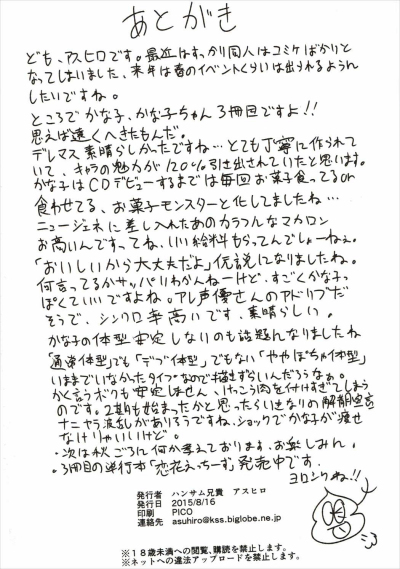 あとがき
ども、アスヒロです。最近はすっかり同人はコミケばかりと
なってしまいました、来年は春のイベントくらいは出られるようん
したいですね。
ところでかな子、かな子ちゃん3冊目ですよ!!
思えば遠くへきたもんだ。
デレマス素晴らしかったですね…とても丁寧に作られて
いて、キャラの魅力が120%引き出されていたと思います。
かな子はCDデビューするまでは毎回お菓子食ってるor
食わせてる、お菓子モンスターと化してましたね…
ニュージェネに差し入れたあのカラフルなマカロン
お高いんですってね、いい給料もらってんでしょーねぇ。
「おいしいから大丈夫だよ」伝説になりましたね。
何言ってるかサッパリわかんねーけど、すごくかな子っ
ぽくていいですよね。アレ声優さんのアドリブだ
そうで、シンクロ率高いです、素晴らしい。
かな子の体型安定しないのも話題んなりましたね
「通常体型」でも「デップ体型」でもない「ややぽちゃ体型」
いままでいなかったタイプなので描きずらいんだろうなぁ。
かく言うボクも安定しません、けっこう肉を付けすぎてしまう
のです。2期も始まったかと思ったらいきなりの解散宣言
ナニヤラ波乱がありそうですね、ショックでかな子が痩せ
なけりゃいいけど。
・次は秋ごろに何か考えております、お楽しみん。
・3冊目の単行本「恋花えっちーず」発売中です。
ヨロシクね!!
発行者 ハンサム兄貴 アスヒロ
発行日 2015/8/16
印刷 PICO
連絡先 asuhiro@kss.biglobe.ne.jp
※18歳未満への閲覧、購読を禁止します。
※ネットへの違法アップロードを禁止します。